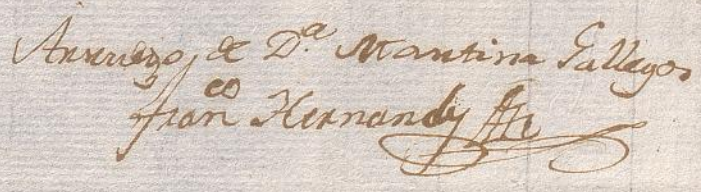 Arruego, de D.ª Martina Gallegos
Franco Hernandz